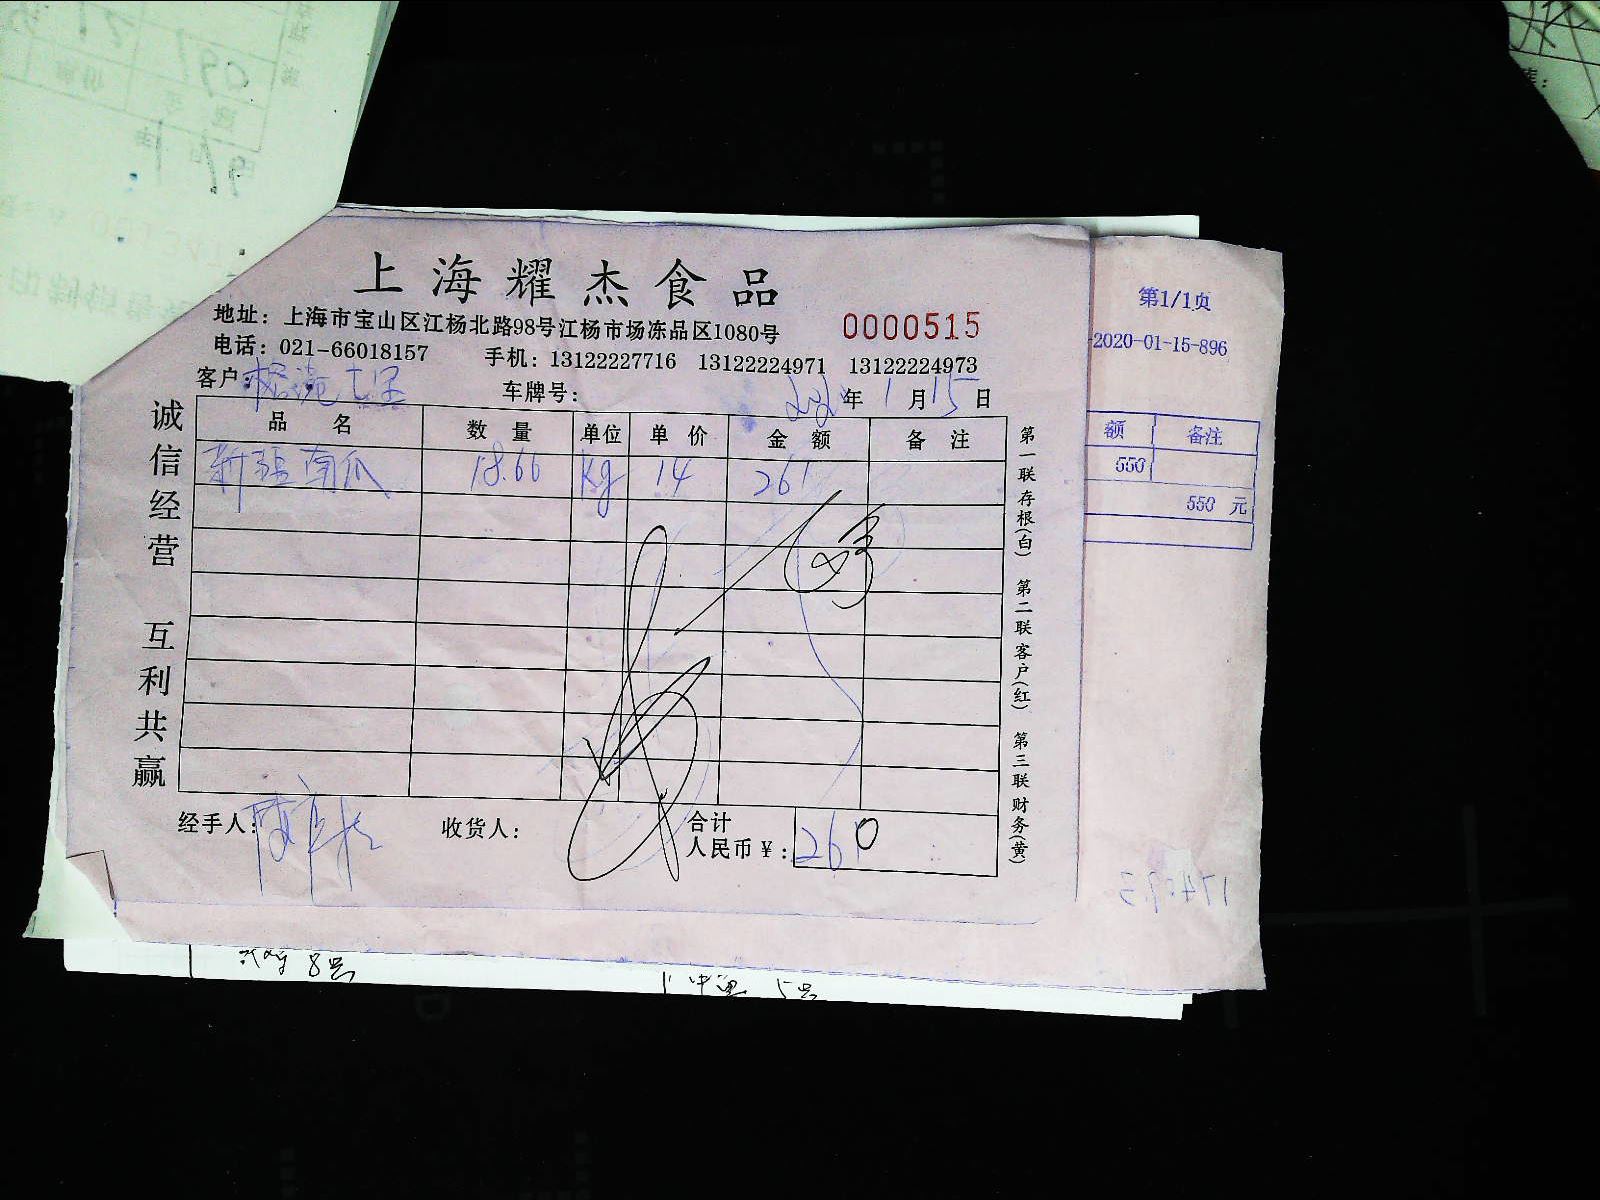 上海耀杰食品
地址：上海市宝山区江杨北路98号江杨市场冻品区1080号
0000515
电话：021-66018157 手机：13122227716 13122224971 13122224973
客户： 车牌号： 年 1 月 15 日
品名 数量 单位 单价 金额 备注
新疆南瓜 18.66 kg 14 261
经手人： 收货人： 合计
人民币￥： 260
诚信经营 互利共赢
第一联存根(白) 第二联客户(红) 第三联财务(黄)
第1/1页
-2020-01-15-896
额 备注
550
550 元
8号
5号